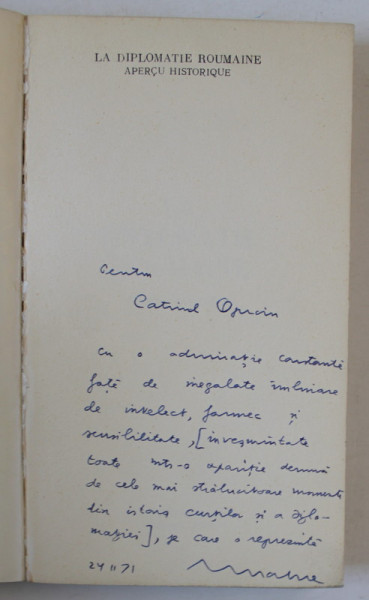 LA DIPLOMATIE ROUMAINE
APERÇU HISTORIQUE
Pentru
Catrinel Oproiu
cu o admirație constantă
față de inegalata îmbinare
de intelect, farmec și
sensibilitate, [înveșmîntate
toate într-o apariție demnă
de cele mai strălucitoare momente
din istoria curților și a diplo-
mației], pe care o reprezintă
24 II 71